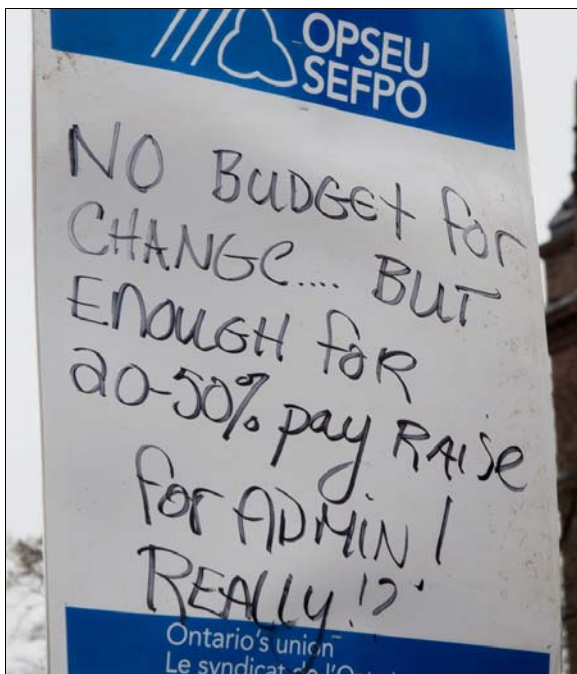 OPSEU
SEFPO
NO BUDGET for
CHANGE.... BUT
ENOUGH foR
20-50% pay RAISe
for ADMIN!
REALLY!?
Ontario's union
Le syndicat de l'Ont